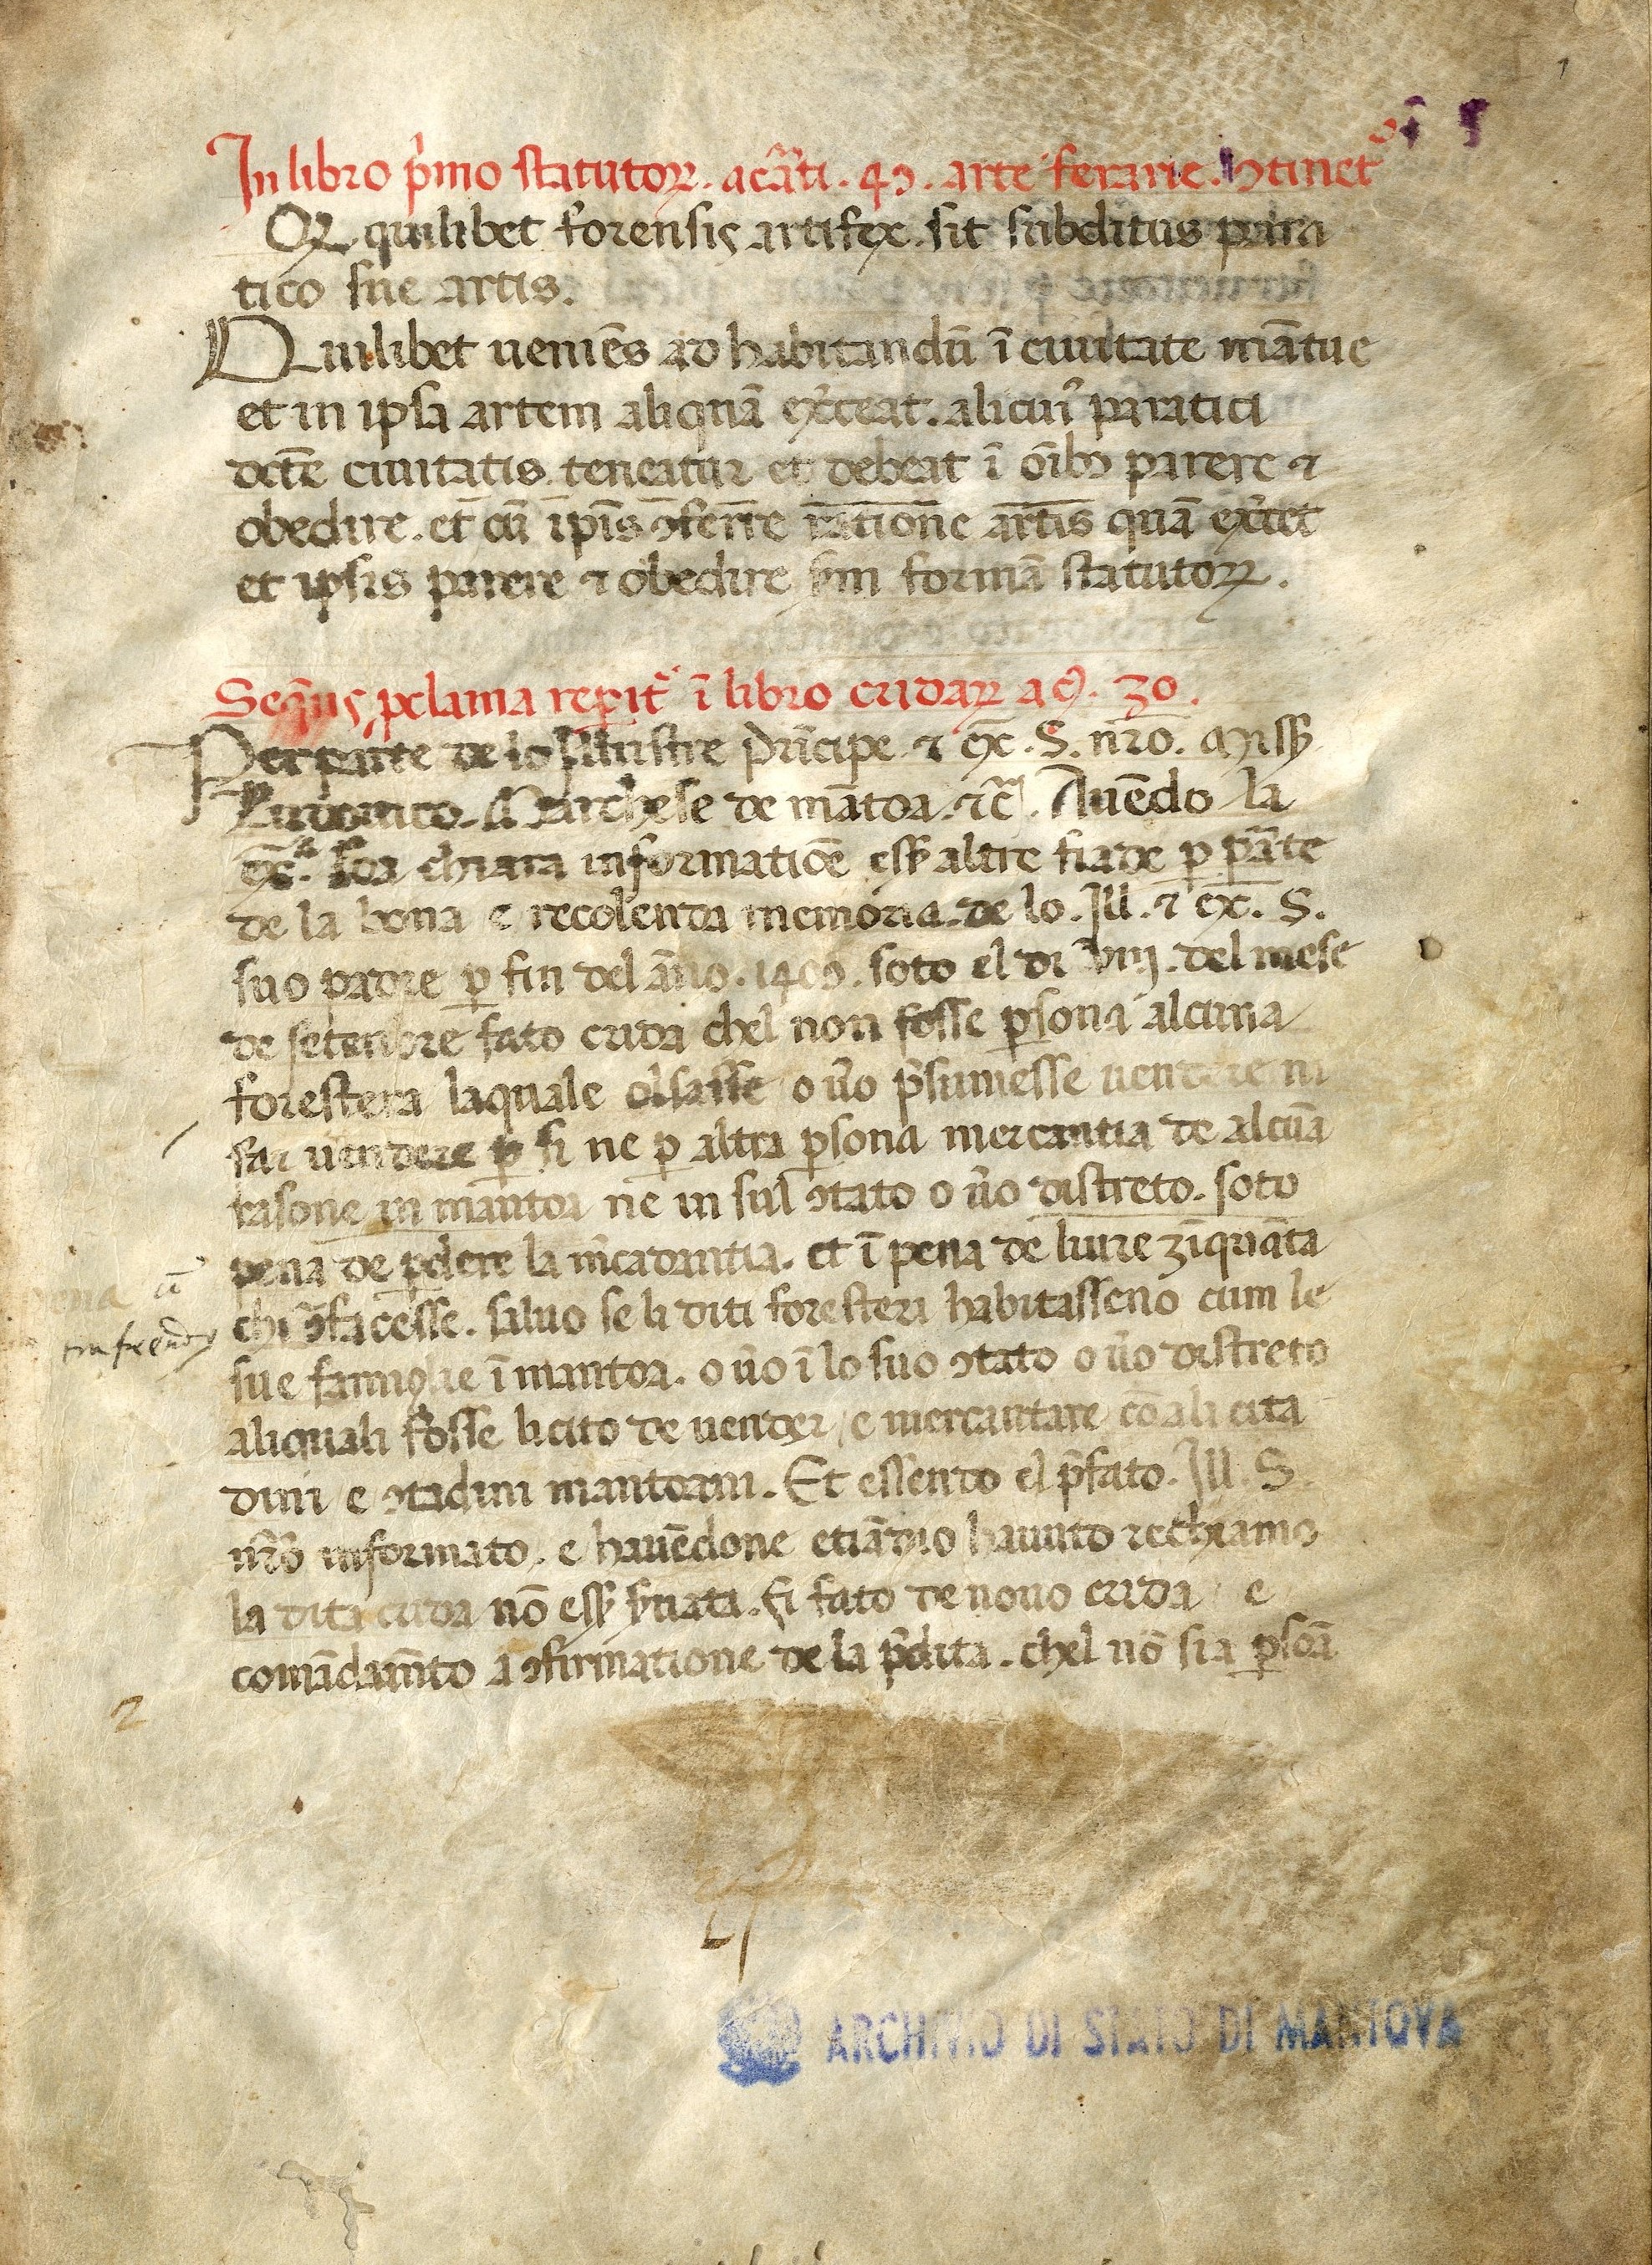 1
In libro pͥmo statutoꝝ. acͣrti. 49. arte ferarie. ꝯtinetͬ
Qꝫ quilibet forensis artifex. sit subditus para
tico sue artis.
Quilibet ueniēs ad habitandū ī ciuitate mātue
et in ipsa artem aliquā exͨceat. alicuiꝰ paratici
dc̄te ciuitatis teneatur et debeat ī oībꝫ parere ⁊
obedire. et cū ipīs ꝯferre rationē artis quā exͨcet
et ipsis parere ⁊ obedire ẜm formā statutoꝝ.
Seqūs ꝓclama repit̾ ī libro cridaꝝ a c̄. 30.
Per parte de lo Illustre Prīcipe ⁊ ex̄. S. nr̄o. Misẜ
Ludouico. Marchese de mātoa. ⁊c̄. Auēdo la
ex̄ᵃ. soa chiara informatiōe esẜ altre fiade ꝑ parte
de la bona e recolenda memoria. de lo. Ill. ⁊ ex̄. S.
suo padre ꝑ fin del āno. 1409. soto el di viij. del mese
de setenbre fato crida chel non fosse ꝑsona alcuna
forestera laquale olsasse o ūo p̄sumesse uendere ni
far uendere ꝑ si ne ꝑ altra ꝑsona mercantia de alcūa
rasone in mantoa ne in sul ꝯtato o ūo distreto. soto
pena de ꝑdere la m̄cadantia. et ī pena de liure zīquāta
chi ꝯ̄facesse. saluo se li diti foresteri habitasseno cum le
sue famiglie ī mantoa. o ūo ī lo suo ꝯtato o ūo distreto
aliquali fosse licito de uender e mercantare cō ali cita
dini e ꝯtadini mantoani. Et essendo el p̄fato. Ill. S.
nr̄o informato. e hauēdone etiādio hauuto rechiamo
la dita crida nō esẜ ẜuata. fi fato de nouo crida e
comādamēto a ꝯfirmatione de la p̄dita. chel nō sia ꝑsōa
pena ꝯ̄
trafacendꝫ
2
ARCHIVIO DI STATO DI MANTOVA